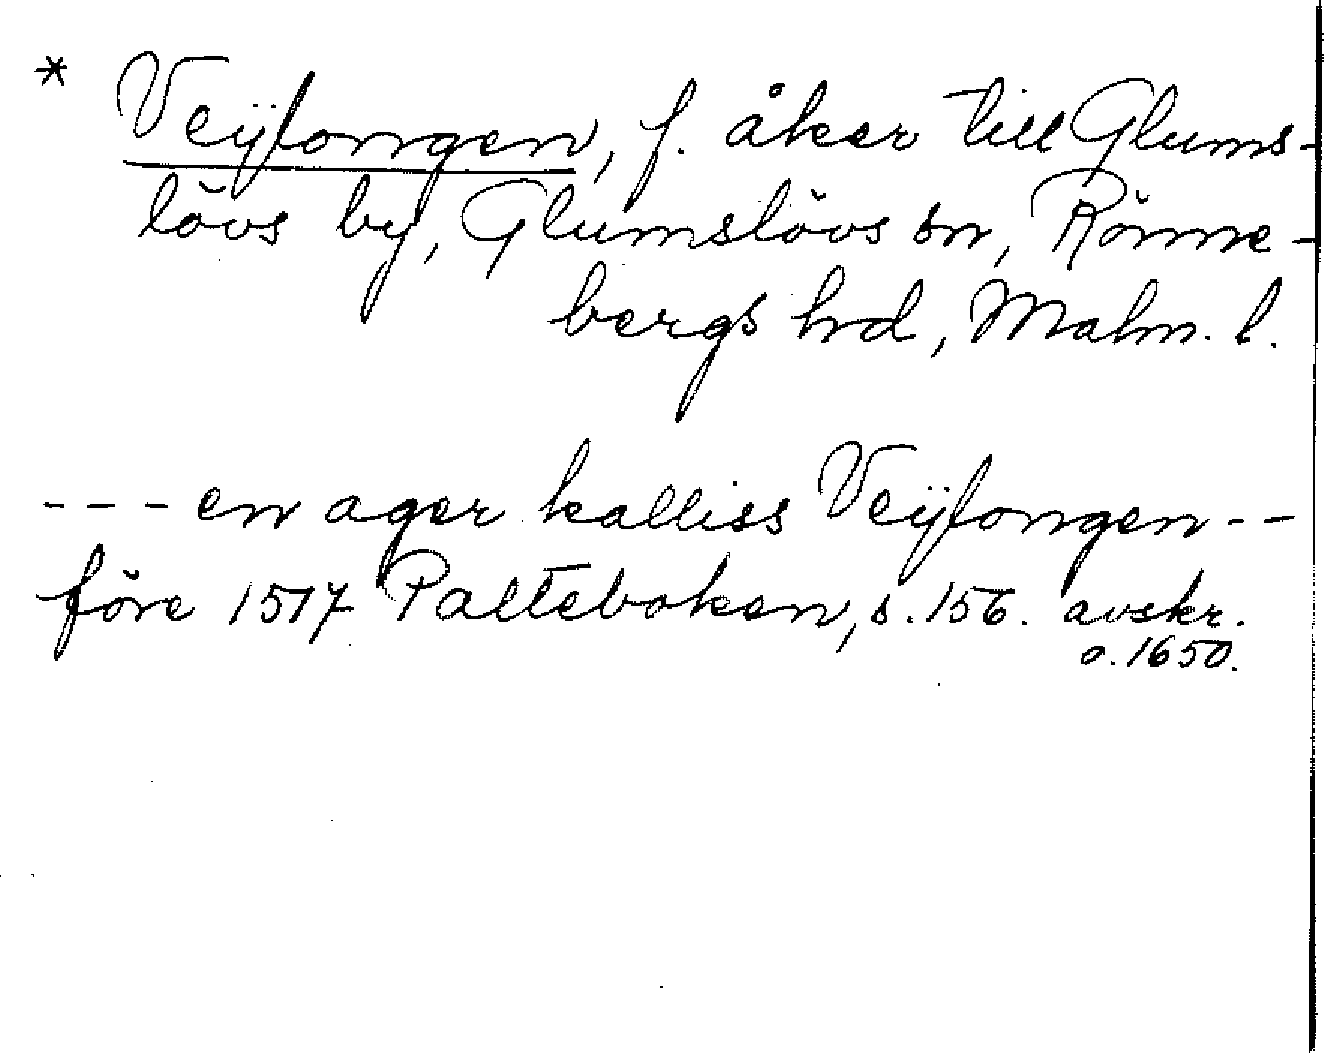 * Veÿlongen, f. åker till Glums-
lövs by, Glumslövs sn, Rönne-
bergs hd, Malm. l.
- - - en ager kalliss Veÿlongen - -
före 1517 Palteboken, s. 156. avskr.
o. 1650.